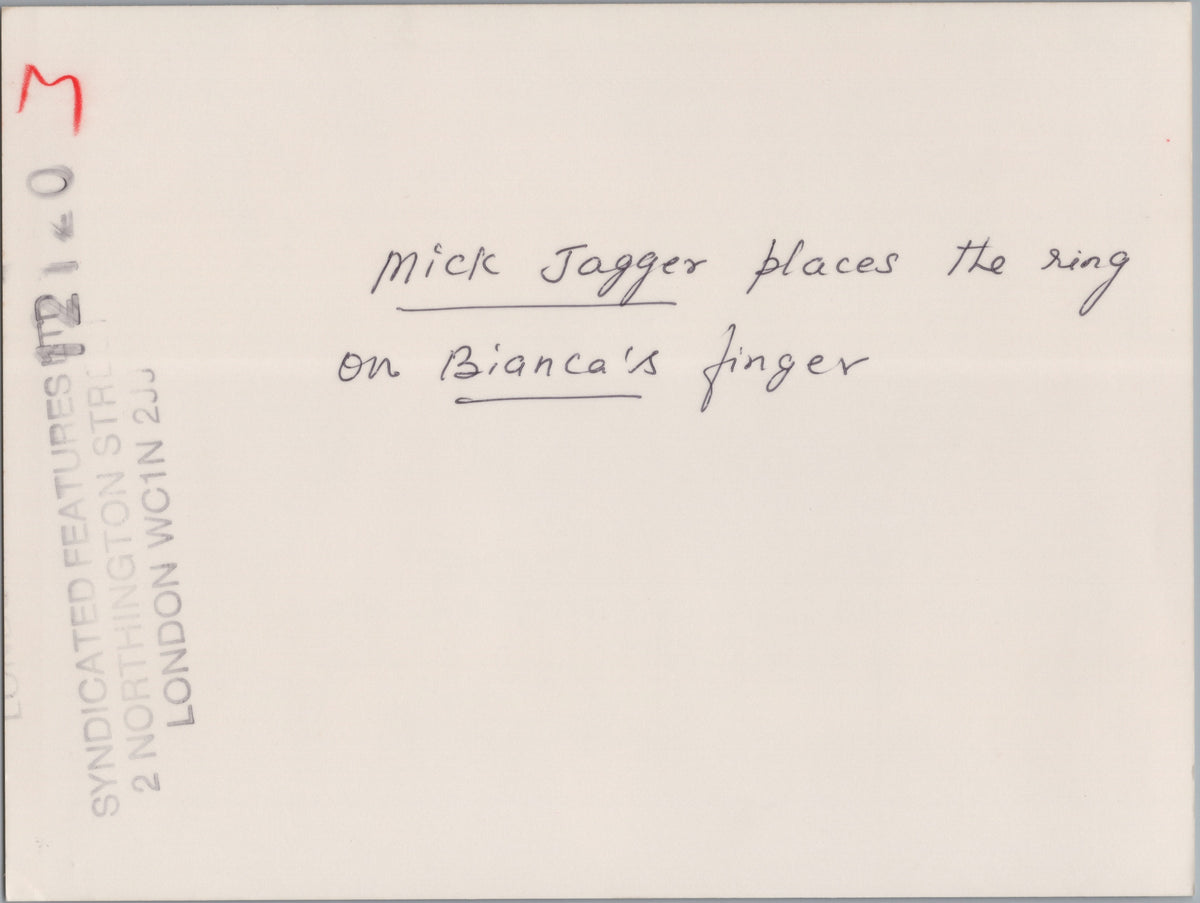 M
Mick Jagger places the ring
on Bianca's finger
SYNDICATED FEATURES LTD
2 NORTHINGTON STRE
LONDON WC1N 2JJ